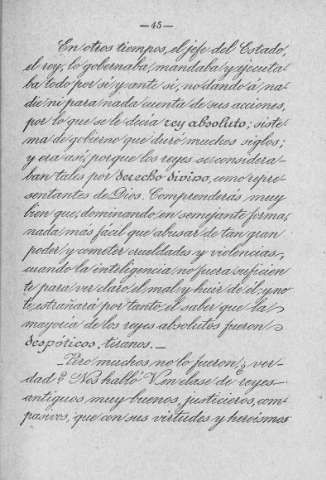 —45—
En otros tiempos, el jefe del Estado,
el rey, lo gobernaba, mandaba y ejecuta
ba todo por sí y ante sí, no dando á na-
die ni para nada cuenta de sus acciones,
por lo que se le decía rey absoluto; siste
ma de gobierno que duró muchos siglos;
y era así, porque los reyes se considera
ban tales por derecho divino, como repre
sentantes de Dios. Comprenderás muy
bien que, dominando en semejante forma,
nada más fácil que abusar de tan gran
poder y cometer crueldades y violencias,
cuando la inteligencia no fuera suficien
te para ver claro el mal y huir de él, y no
te extrañará por tanto, el saber que la
mayoría de los reyes absolutos fueron
despóticos, tiranos.—
—Pero muchos no lo fueron ¿ver-
dad? Nos habló V. en clase de reyes
antiguos muy buenos, justicieros, com
pasivos, que con sus virtudes y heroísmos